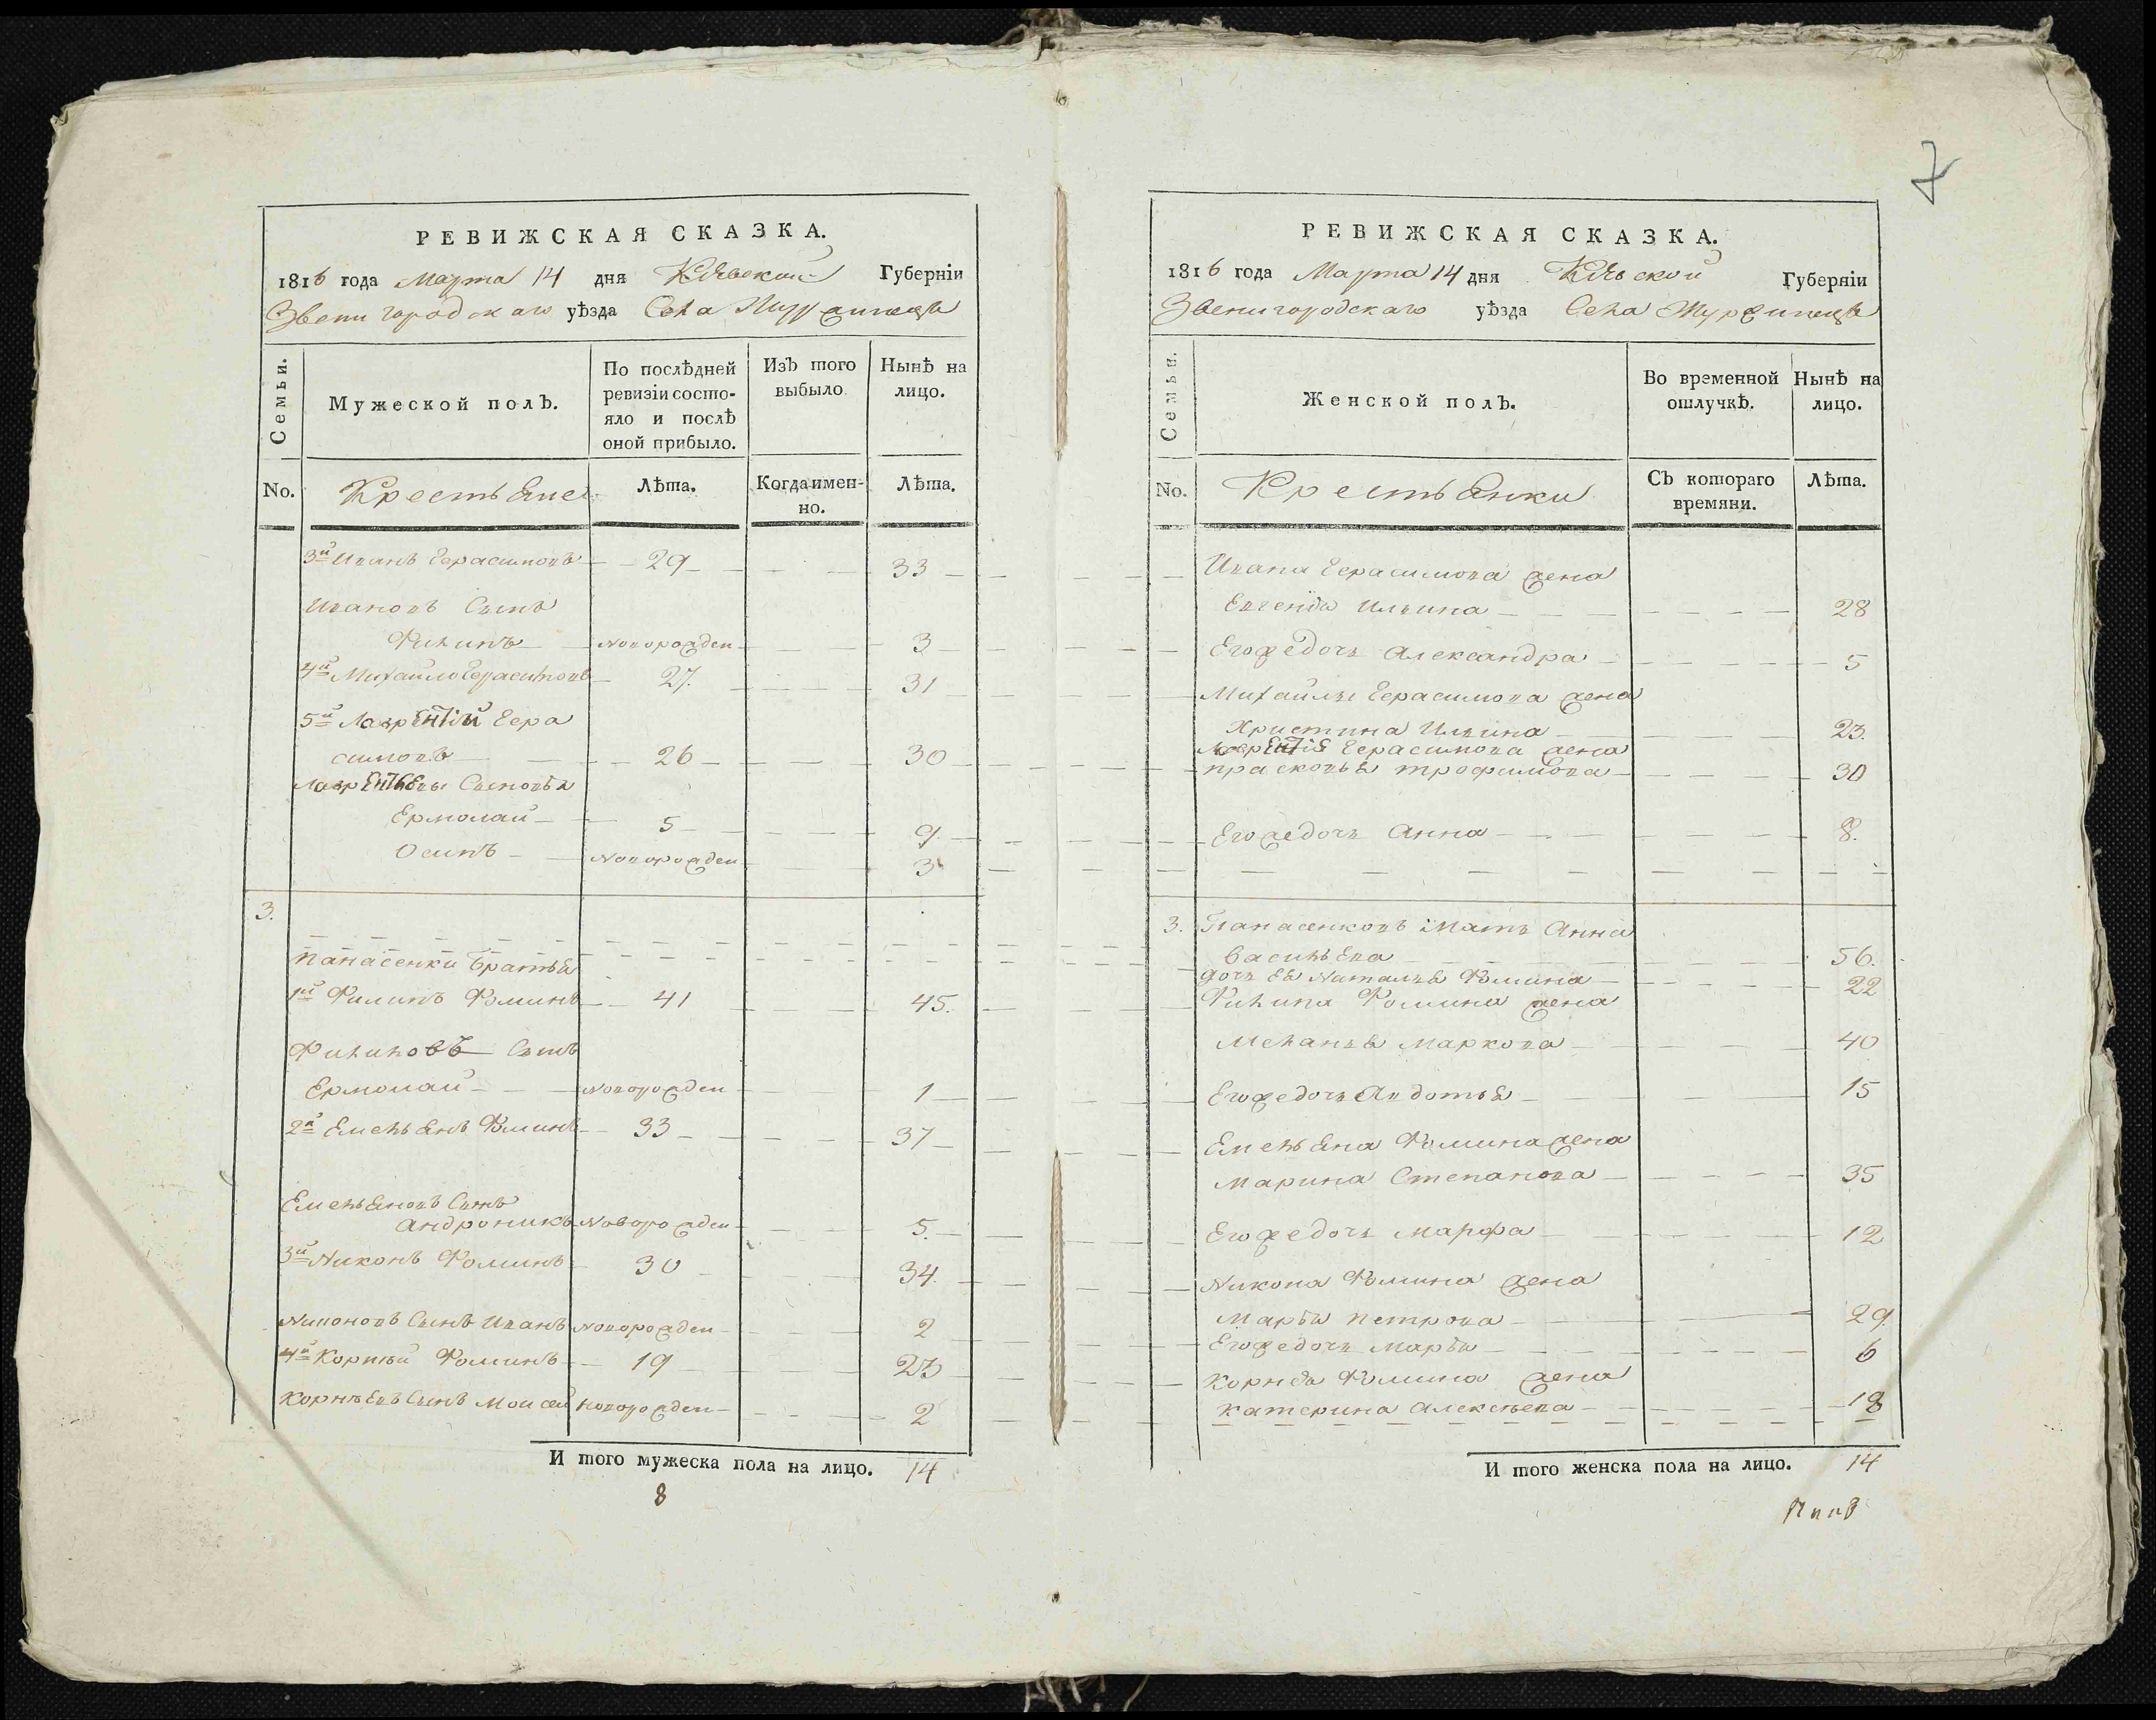 7
РЕВИЖСКАЯ СКАЗКА.
1816 года Марта 14 дня Кіевской Губерніи
Звенигородскаго уѣзда Села Журжинецъ
Семьи.
Мужеской полъ.
По послѣдней ревизіи состо-
яло и послѣ
оной прибыло.
Изъ того
выбыло
Нынѣ на
лицо.
No.
Крестьяне
Лѣта.
Когда имен-
но.
Лѣта.
3й Иванъ Герасимовъ 29 33
Ивановъ Сынъ
Филипъ новорожден 3
4й Михайло Герасимовъ 27. 31
5й Лаврентій Гера
симовъ 26 30
Лаврентьевы Сыновья
Ермолай 5 9.
Осипъ новорожден 3
3.
Панасенки Братья
1й Филипъ Фоминъ 41 45.
Филиповъ Сынъ
Ермолай новорожден 1
2й Емельянъ Фоминъ 33 37
Емельяновъ Сынъ
Андроникъ новорожден 5.
3й Никонъ Фоминъ 30 34.
Никоновъ Сынъ Иванъ новорожден 2
4й Корнѣй Фоминъ 19 23
Корнѣевъ Сынъ Моисей новорожден 2
И того мужеска пола на лицо. 14
8
РЕВИЖСКАЯ СКАЗКА.
1816 года Марта 14 дня Кіевской Губерніи
Звенигородскаго уѣзда Села Журжинецъ
Семьи.
Женской полъ.
Во временной
отлучкѣ.
Нынѣ на
лицо.
No.
Крестьянки
Съ котораго
времяни.
Лѣта.
Ивана Герасимова жена
Евгенія Ильина 28
Его же дочь Александра 5
Михайлы Герасимова жена
Христина Ильина 23.
Лаврентія Герасимова жена
Прасковья Трофимова 30
Его же дочь Анна 8.
3. Панасенковъ Мать Анна
Васильева 56.
дочь ея Наталья Фомина 22
Филипа Фомина жена
Меланья Маркова 40
Его же дочь Авдотья 15
Емельяна Фомина жена
Марина Степанова 35
Его же дочь Марфа 12
Никона Фомина жена
Марья Петрова 29
Его же дочь Марья 6
Корнея Фомина жена
Катерина Алексѣева 18
И того женска пола на лицо. 14